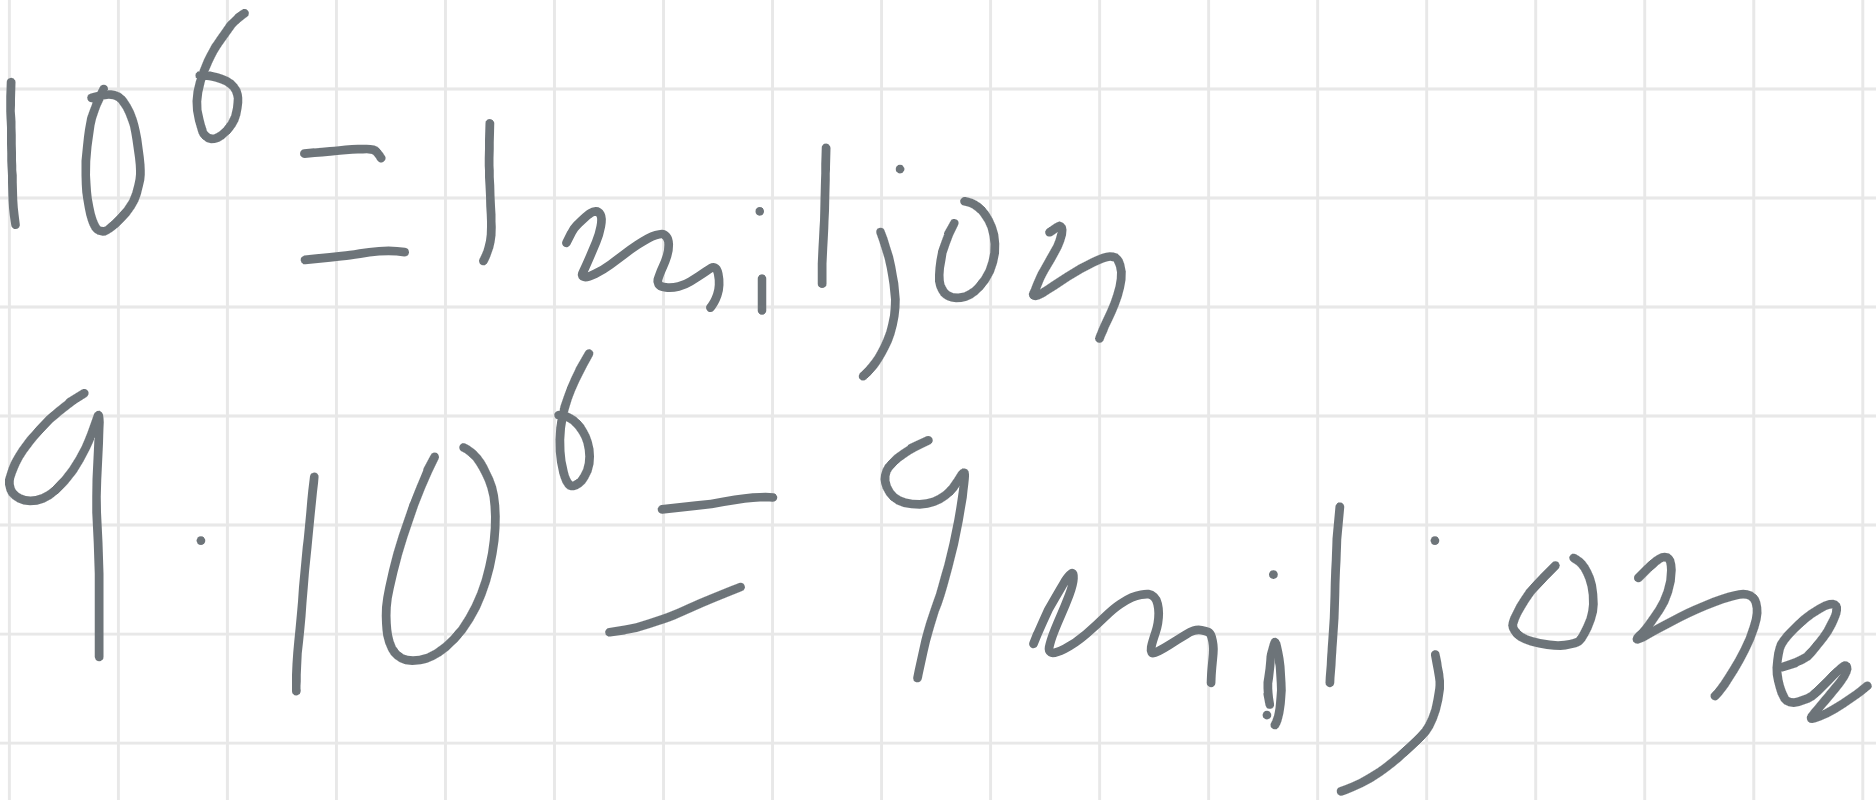 10⁶ = 1 miljon
9 · 10⁶ = 9 miljoner